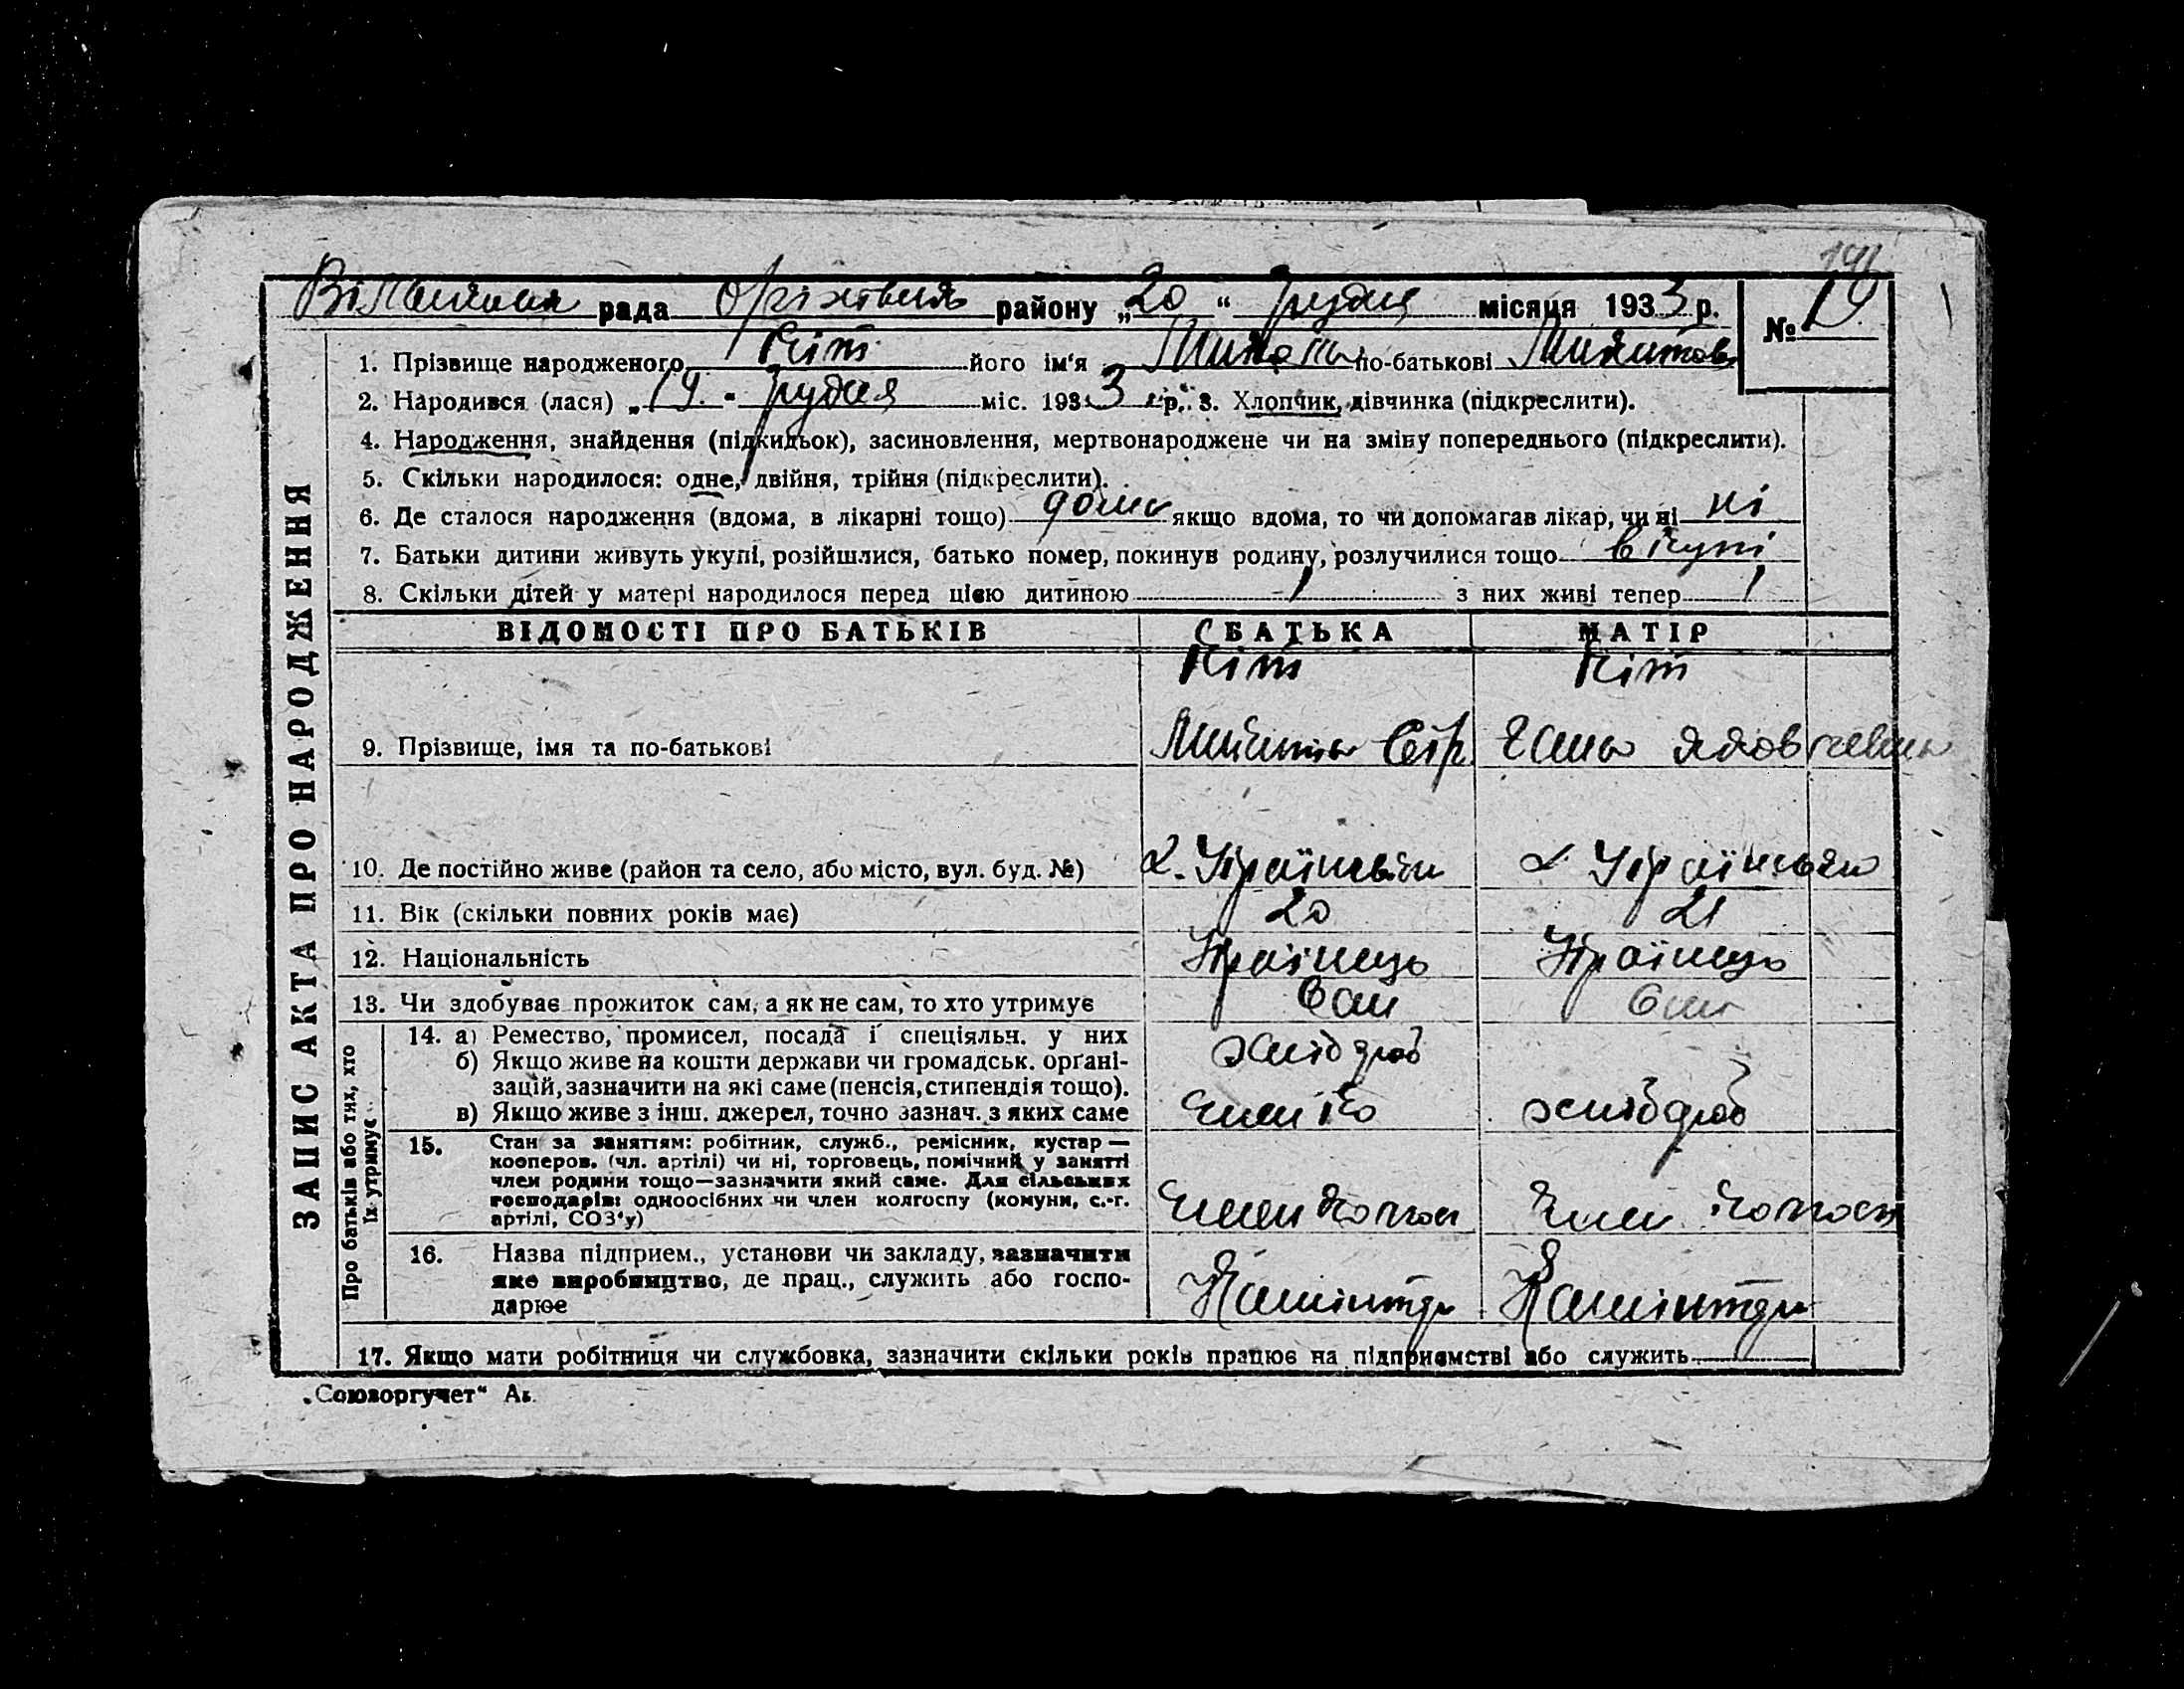 рада Оріхівськ району „20“ грудня місяця 1933 р. № 19
1. Прізвище народженого Кіт його ім‘я по-батькові Микитов
2. Народився (лася) „19.“ грудня міс. 1933 р. 3. Хлопчик, дівчинка (підкреслити).
4. Народження, знайдення (підкидьок), засиновлення, мертвонароджене чи на зміну попереднього (підкреслити).
5. Скільки народилося: одне, двійня, трійня (підкреслити).
6. Де сталося народження (вдома, в лікарні тощо) дома якщо вдома, то чи допомагав лікар, чи ні ні
7. Батьки дитини живуть укупі, розійшлися, батько помер, покинув родину, розлучилися тощо вкупі
8. Скільки дітей у матері народилося перед цією дитиною 1 з них живі тепер 1
ЗАПИС АКТА ПРО НАРОДЖЕННЯ
ВІДОМОСТІ ПРО БАТЬКІВ БАТЬКА МАТІР
Кіт Кіт
9. Прізвище, імя та по-батькові Микита Яковлевна
10. Де постійно живе (район та село, або місто, вул. буд. №)
11. Вік (скільки повних років має) 20 21
12. Національність Українець Українець
13. Чи здобуває прожиток сам, а як не сам, то хто утримує Сам Сам
Про батьків або тих, хто
їх утримує
14. а) Ремество, промисел, посада і спеціяльн. у них хлібороб
б) Якщо живе на кошти держави чи громадськ. органі-
зацій, зазначити на які саме (пенсія, стипендія тощо).
в) Якщо живе з інш. джерел, точно зазнач. з яких саме хлібороб
15. Стан за заняттям: робітник, служб., ремісник, кустар —
кооперов. (чл. артілі) чи ні, торговець, помічний у занятті
член родини тощо—зазначити який саме. Для сільських
господарів: одноосібних чи член колгоспу (комуни, с.-г.
артілі, СОЗ‘у) Член колгосп Член колгосп
16. Назва підприєм., установи чи закладу, зазначити
яке виробництво, де прац., служить або госпо-
дарює
17. Якщо мати робітниця чи службовка, зазначити скільки років працює на підприємстві або служить
„Союзоргучет“